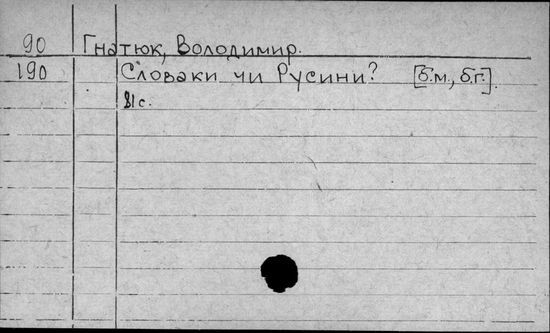 90 Гнатюк, Володимир.
190 Словаки чи Русини? [б.м., б.г.].
81с.